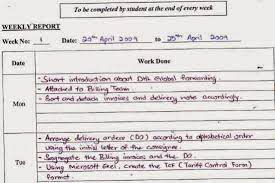 To be completed by student at the end of every week
WEEKLY REPORT
Week No: 1 Date: 20th April 2009 to 25th April 2009
Date Work Done
Mon
- Short introduction about DHL Global Forwarding.
- Attached to Billing Team
- Sort and detach invoices and delivery note accordingly.
Tue
- Arrange delivery orders (DO) according to alphabetical order
using the initial letter of the consignee.
- Segregate the Billing invoice and the DO.
- Using Microsoft Excel, create the TCF (Tariff Control Form)
format.